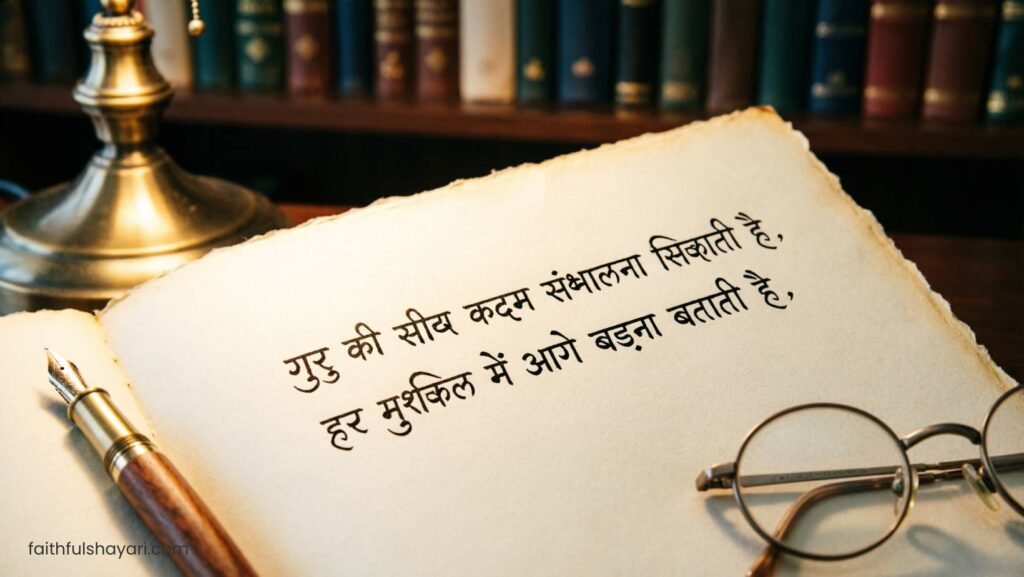 गुरु की सीख कदम संभालना सिखाती है,
हर मुश्किल में आगे बड़ना बताती है,
faithfulshayari.com